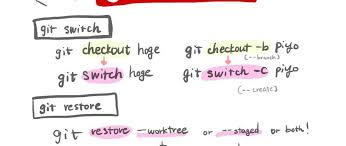 git switch
git checkout hoge
git switch hoge
git checkout -b piyo
(--branch)
git switch -c piyo
(--create)
git restore
git restore --worktree or --staged or both!